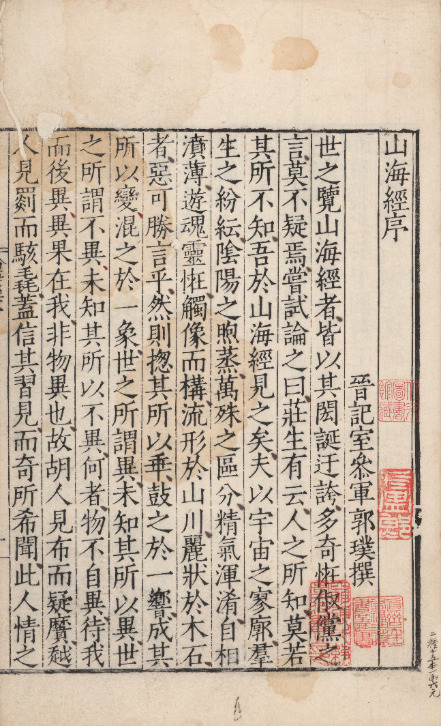 山海經序
晉記室參軍郭璞撰
世之覽山海經者皆以其閎誕迂誇多奇怪俶儻之
言莫不疑焉嘗試論之曰莊生有云人之所知莫若
其所不知吾於山海經見之矣夫以宇宙之寥廓羣
生之紛紜陰陽之煦蒸萬殊之區分精氣渾淆自相
濆薄遊魂靈怪觸像而構流形於山川麗狀於木石
者惡可勝言乎然則揔其所以乖鼓之於一響成其
所以變混之於一象世之所謂異未知其所以異世
之所謂不異未知其所以不異何者物不自異待我
而後異異果在我非物異也故胡人見布而疑黂越
人見罽而駭毳蓋信其習見而奇所希聞此人情之